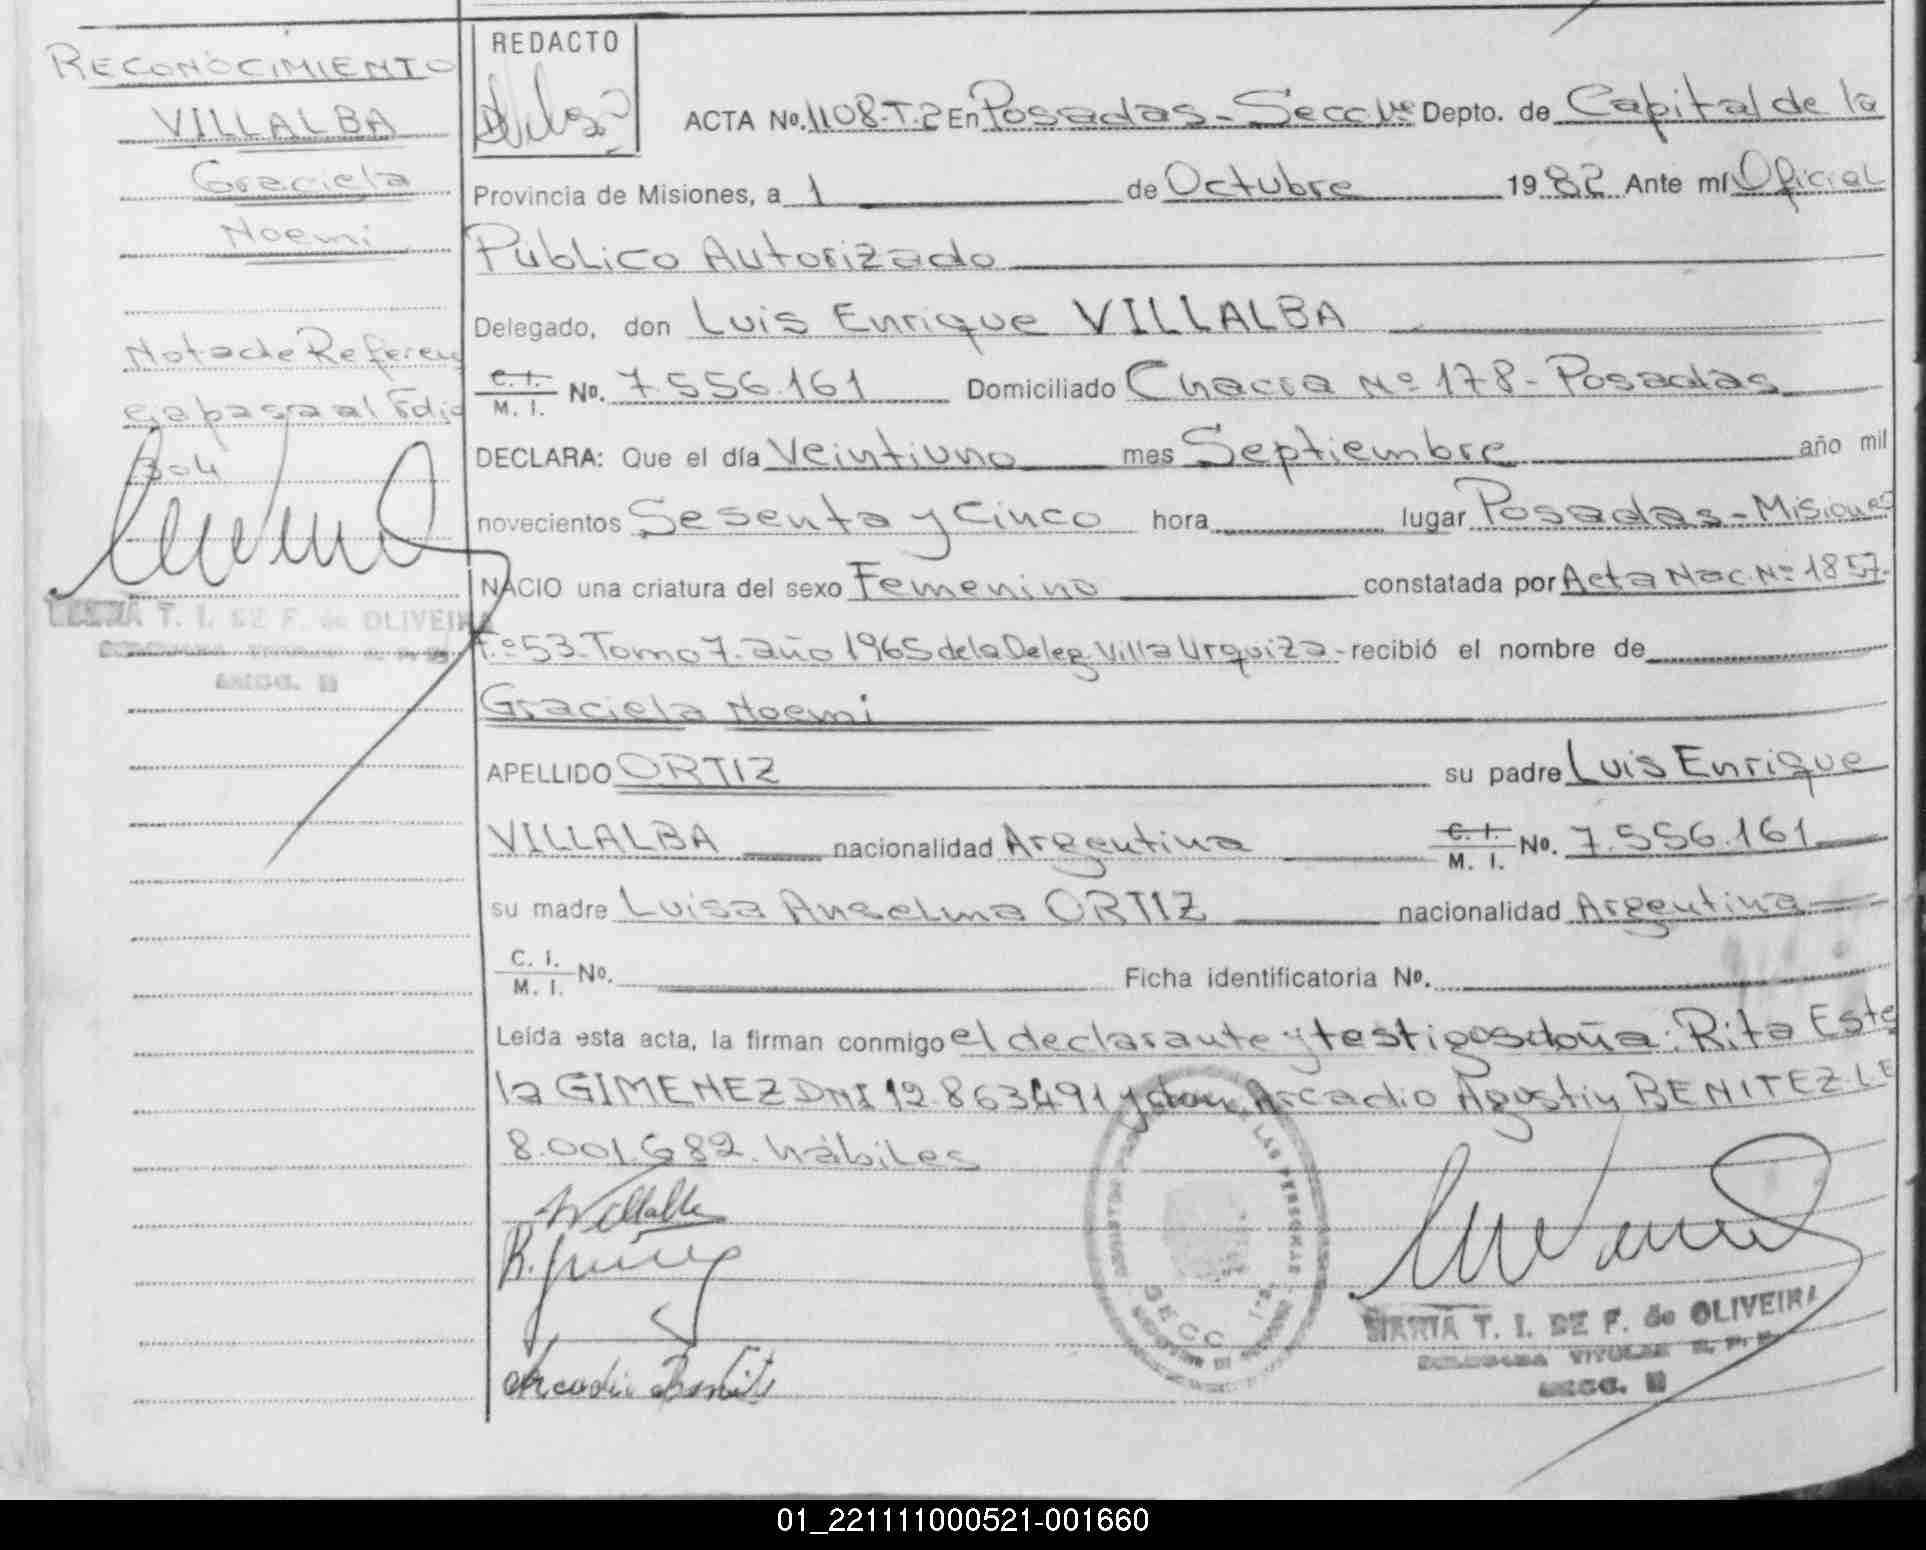 RECONOCIMIENTO
VILLALBA
Graciela
Noemi
Nota de Referen
cia pasa al Folio
304
MARIA T. I. DE F. de OLIVEIRA
SECC.
REDACTO
ACTA No. 1108-T.2 En Posadas - Secc 1ra Depto. de Capital de la
Provincia de Misiones, a 1 de Octubre 1982 Ante mí Oficial
Público Autorizado
Delegado, don Luis Enrique VILLALBA
C. I. M. I. No. 7.556.161 Domiciliado Chacra Nº 178 - Posadas
DECLARA: Que el día Veintiuno mes Septiembre año mil
novecientos Sesenta y Cinco hora lugar Posadas - Misiones
NACIO una criatura del sexo Femenino constatada por Acta Nac. Nº 1857.
F.º 53. Tomo 7. año 1965 de la Deleg. Villa Urquiza - recibió el nombre de
Graciela Noemi
APELLIDO ORTIZ su padre Luis Enrique
VILLALBA nacionalidad Argentina C. I. M. I. No. 7.556.161
su madre Luisa Anselma ORTIZ nacionalidad Argentina
C. I. M. I. No. Ficha identificatoria No.
Leída esta acta, la firman conmigo el declarante y testigos doña: Rita Este
la GIMENEZ DNI 12.863.491 y don Arcadio Agustin BENITEZ LE
8.001.682. hábiles
Villalba
Arcadio Benitez
LAS PERSONAS
SECC
MARIA T. I. DE F. de OLIVEIRA
DELEGADA TITULAR R. P. P.
SECC.
01_221111000521-001660